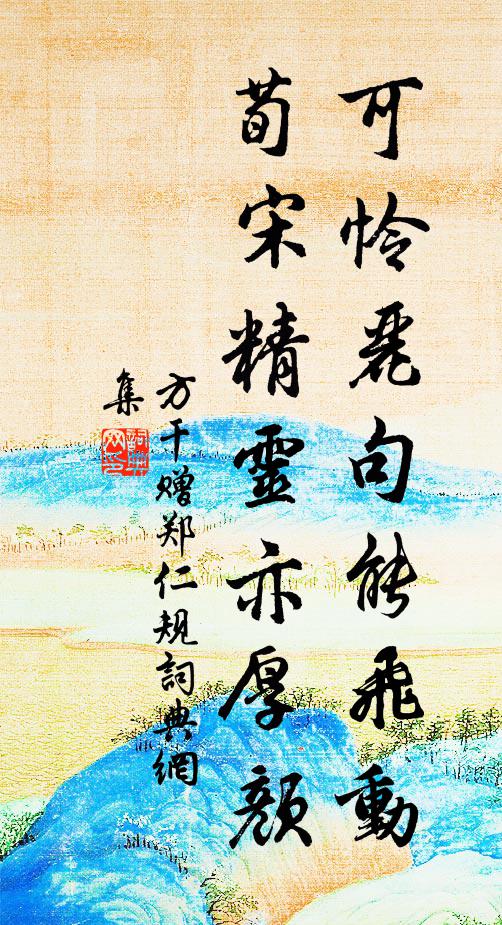 可怜麗句能飛動
荀宋精靈亦厚顔
方干赠郑仁规詞典網
集